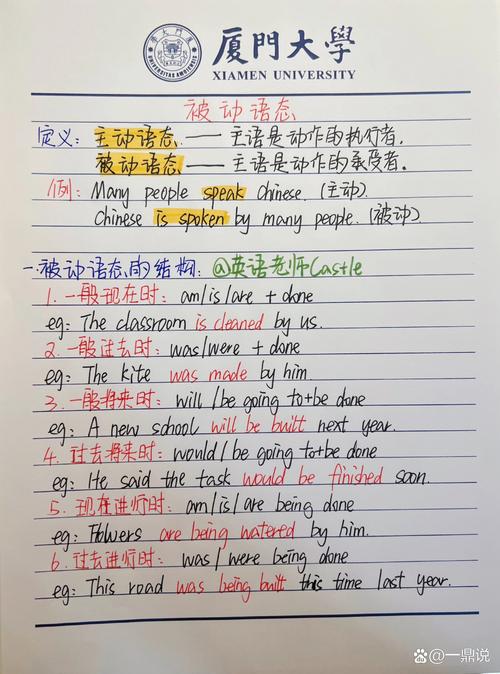 厦門大學
XIAMEN UNIVERSITY
被动语态
定义：主动语态 —— 主语是动作的执行者.
被动语态 —— 主语是动作的承受者.
例：Many people speak Chinese. (主动).
Chinese is spoken by many people. (被动)
一.被动语态的结构：@英语老师Castle
1. 一般现在时：am/is/are + done
eg: The classroom is cleaned by us.
2. 一般过去时：was/were + done
eg: The kite was made by him.
3. 一般将来时：will /be going to+be done
eg: A new school will be built next year.
4. 过去将来时：would / be going to+be done
eg: He said the task would be finished soon.
5. 现在进行时：am/is/are being done
eg: Flowers are being watered by him.
6. 过去进行时：was / were being done
eg: This road was being built this time last year.
@一鼎说